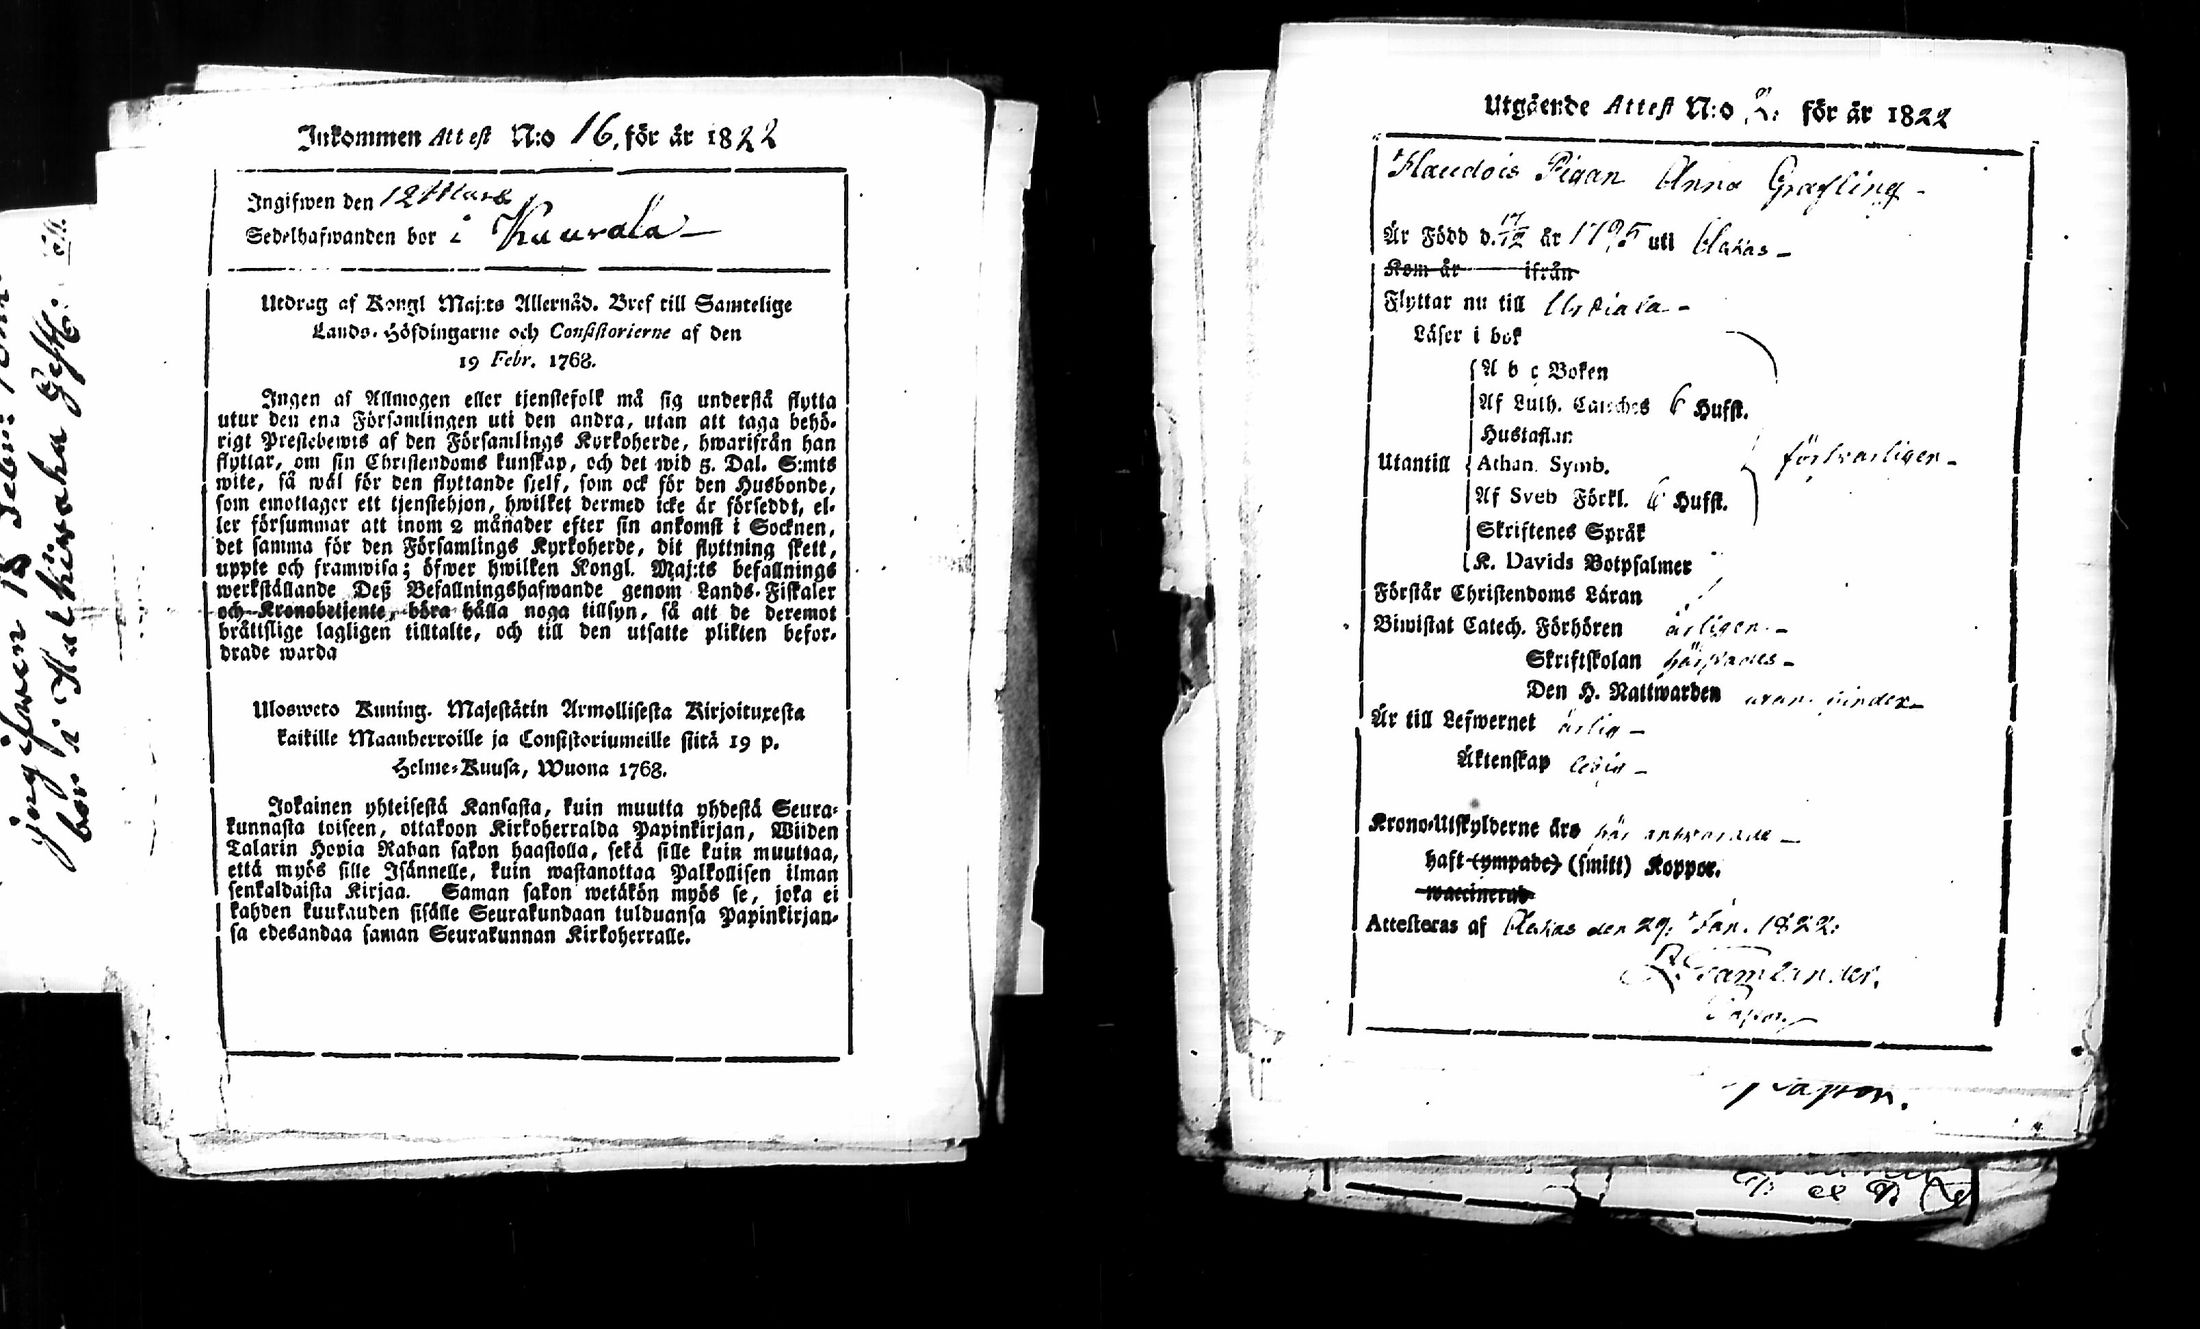 Inkommen Attest N:o 16. för år 1822
Ingifwen den 12 Mars
Sedelhafwanden bor i Kaurala
Utdrag af Kongl Maj:ts Allernåd. Bref till Samtelige
Lands-Höfdingarne och Consistorierne af den
19 Febr. 1768.
Ingen af Allmogen eller tjenstefolk må sig understå flytta
utur den ena Församlingen uti den andra, utan att taga behö-
rigt Prestebewis af den Församlings Kyrkoherde, hwarifrån han
flyttar, om sin Christendoms kunskap, och det wid 5. Dal. S:mts
wite, så wäl för den flyttande sjelf, som ock för den Husbonde,
som emottager ett tjenstehjon, hwilket dermed icke är försedt, el-
ler försummar att inom 2 månader efter sin ankomst i Socknen,
det samma för den Församlings Kyrkoherde, dit flyttning skett,
uppte och framwisa; öfwer hwilken Kongl. Maj:ts befallnings
werkställande Deß Befallningshafwande genom Lands-Fiskaler
och Kronobetjente, böra hålla noga tillsyn, så att de deremot
bråttslige lagligen tilltalte, och till den utsatte plikten befor-
drade warda
Ulosweto Kuning. Majestätin Armollisesta Kirjoituxesta
kaikille Maanherroille ja Consistoriumeille siitä 19 p.
Helme-Kuusa, Wuona 1768.
Jokainen yhteisestä Kansasta, kuin muutta yhdestä Seura-
kunnasta toiseen, ottakoon Kirkoherralda Papinkirjan, Wiiden
Talarin Hopia Rahan sakon haastolla, sekä sille kuin muuttaa,
että myös sille Isännelle, kuin wastanottaa Palkollisen ilman
senkaldaista Kirjaa. Saman sakon wetäkön myös se, joka ei
kahden kuukauden sisälle Seurakundaan tulduansa Papinkirjan-
sa edesandaa saman Seurakunnan Kirkoherralle.
ingifwen 18
bor i
Utgående Attest N:o 2. för år 1822
Pigan Anna Grefling
Är Född d. 17/12 år 1795 uti Akkas
Kom år ifrån
Flyttar nu till Urdiala
Läser i bok
A b c Boken
Af Luth. Cateches 6 Hufst.
Hustaflan
Utantill Athan. Symb. försvarligen
Af Sveb Förkl. 6 Hufst.
Skriftenes Språk
K. Davids Botpsalmer
Förstår Christendoms Läran
Biwistat Catech. Förhören årligen
Skriftskolan
Den H. Nattwarden
Är till Lefwernet ärlig
Äktenskap ledig
Krono-Utskylderne äro här
haft (ympade) (smitt) Koppor.
waccinerad
Attesteras af Akkas den 29. Jan. 1822.